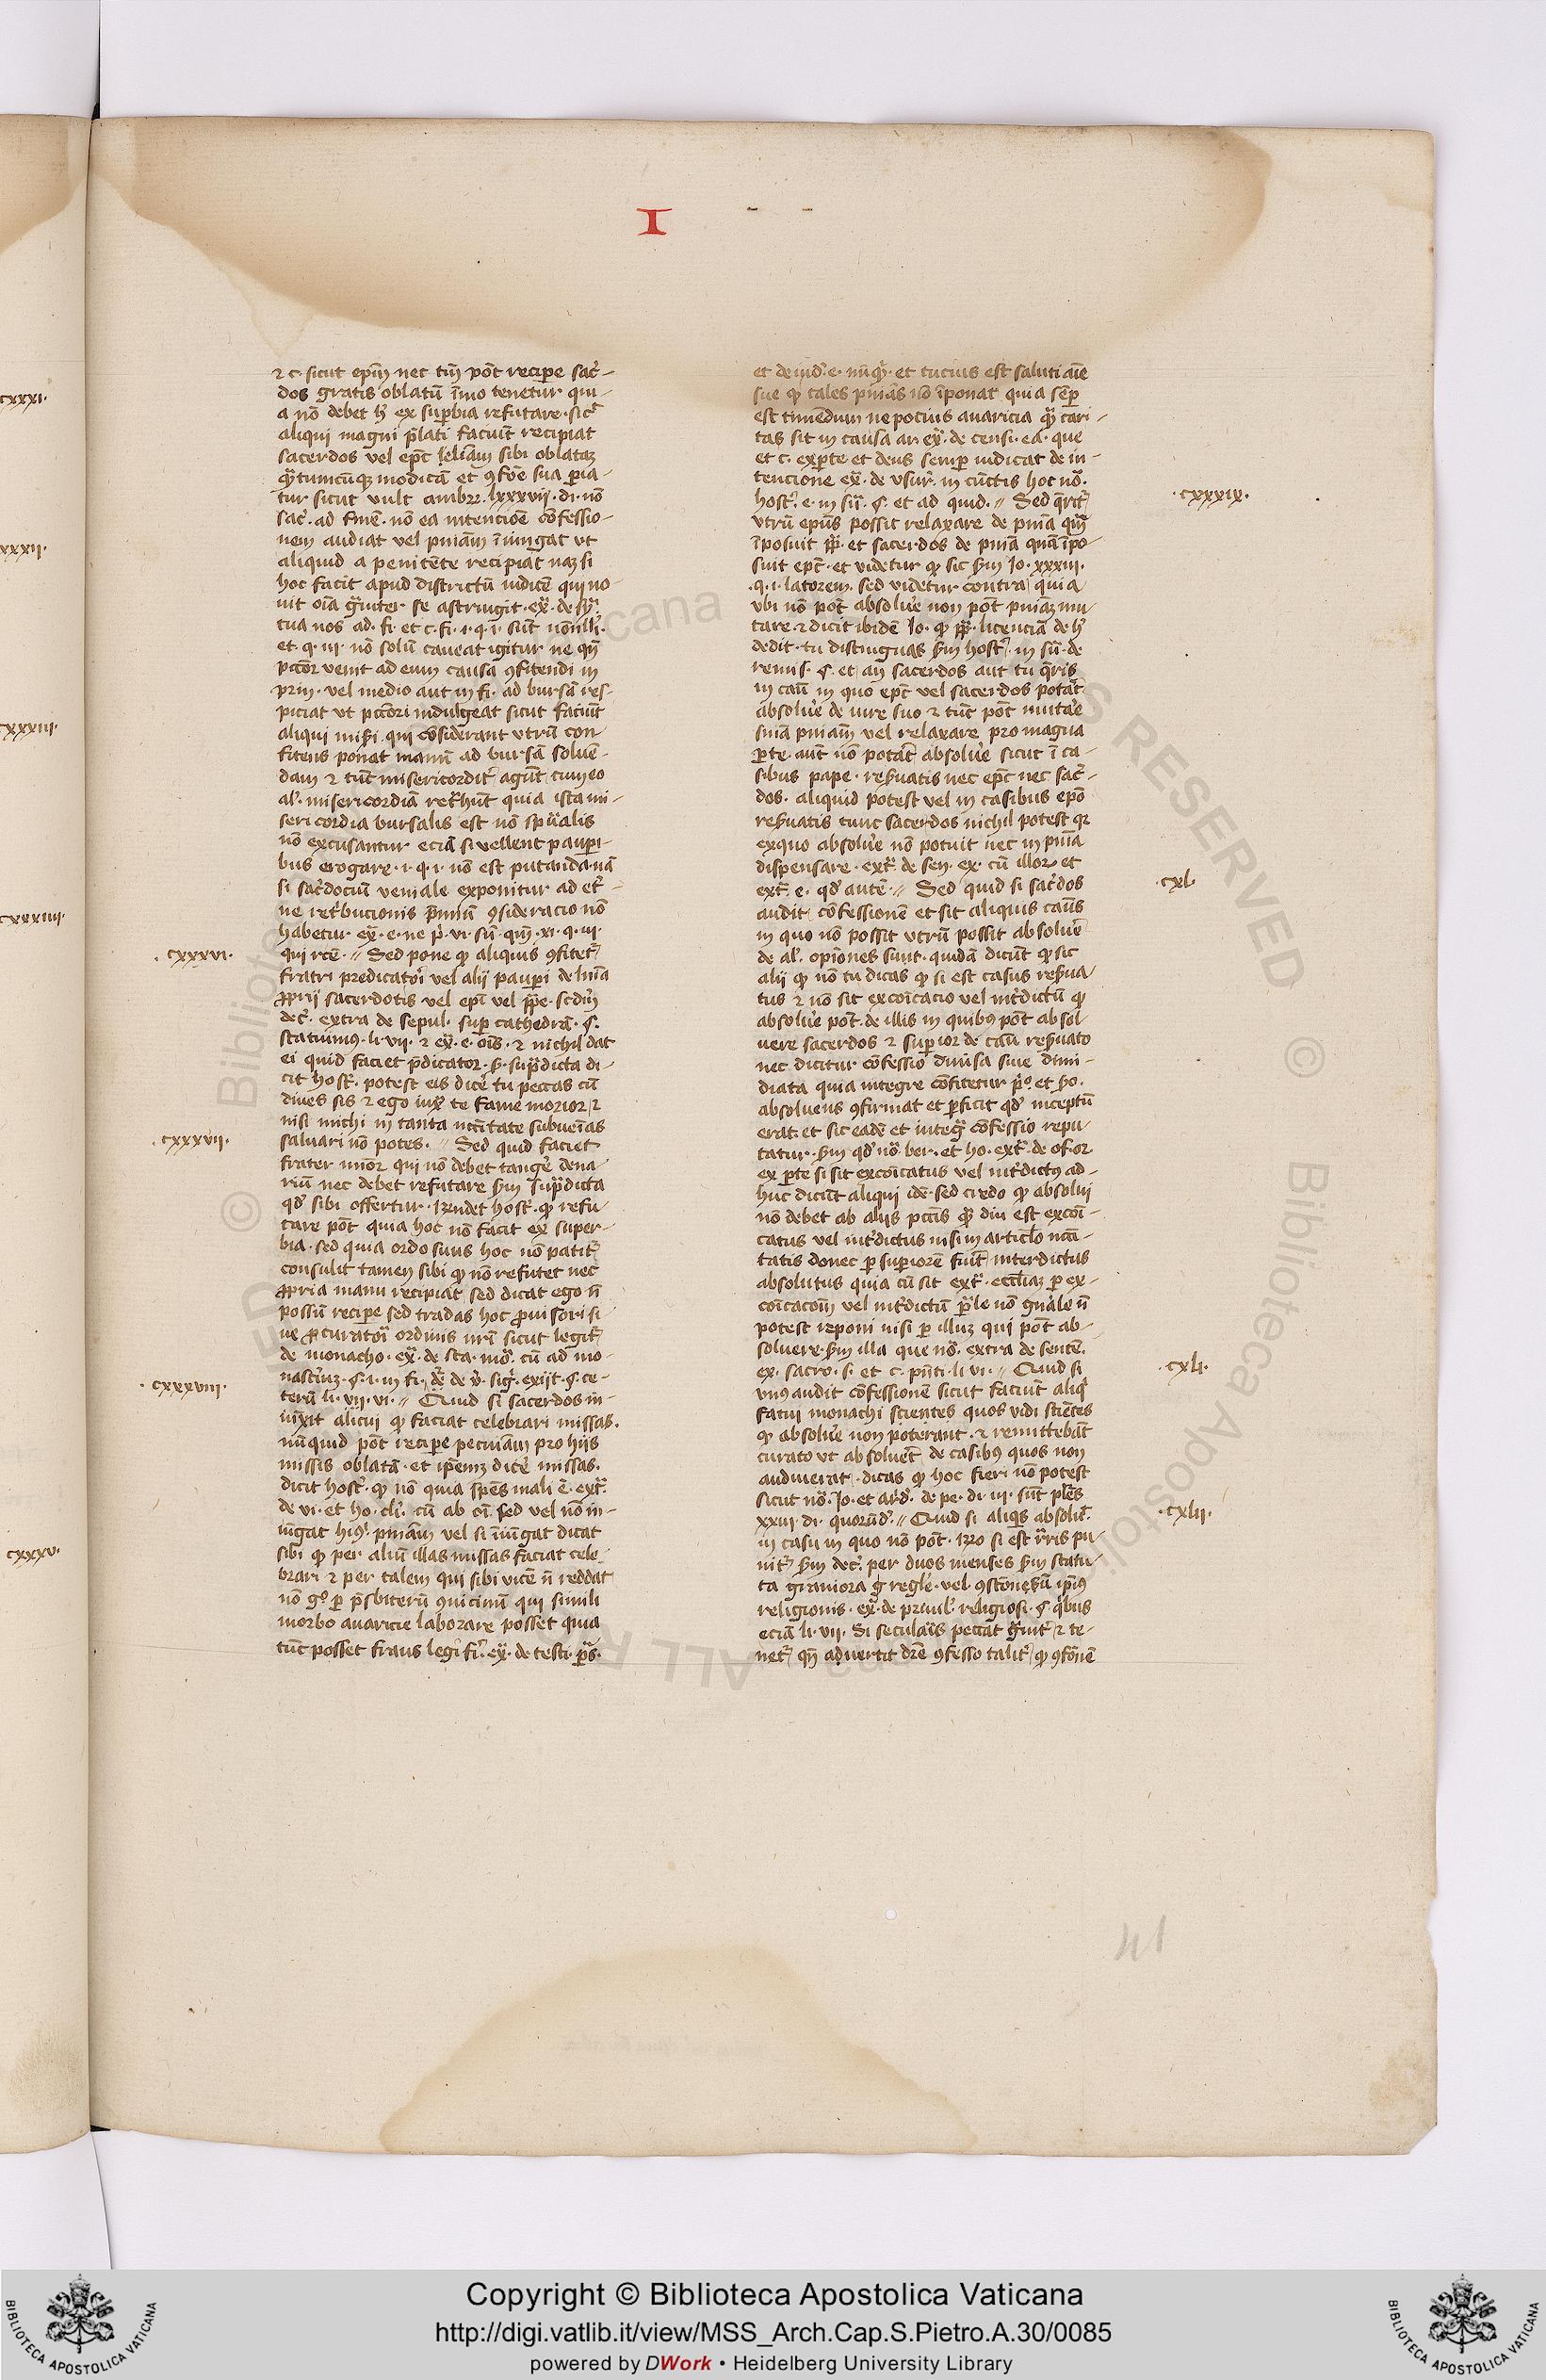 I
⁊ c. sicut epm̄ nec tm̄ pōt recipe sac̓-
dos gratis oblatū īmo tenetur qui-
a nō debet h̓ ex suꝑbia refutare. sic̓
aliqui magni p̄lati faciūt recipiat
sacerdos vel epc̄ leliām sibi oblataꝫ
tur sicut vult ambr. lxxxvii. di. nō
sac̓. ad finē. nō ea intencōē cōfessio-
nem audiat vel pniām īiungat ut
aliquid a penitēte recipiat naꝫ si
hoc facit apud districtū iudicē qui no-
uit oīa g̃uiter se astringit. ex̄. de sy̓.
tua nos ad. fi. et c. fi. i. q. i. sūt nōnlłi.
et. q. iii. nō solū caueat igitur ne qn̄
pctōr venit ad eum causa ꝯfitendi in
prin. vel medio aut in fi. ad bursā res-
piciat ut pctōri indulgeat sicut faciūt
aliqui miẜi. qui cōsiderant vtrū con-
fitens ponat manū ad bursā soluē-
dam ⁊ tūc misericordit̓ agūt cum eo
al̓. misericordiā ret̓hūt quia ista mi-
sericordia bursalis est nō spūalis
nō excusantur eciā si vellent pauꝑi-
bus erogare. i. q. i. nō est putanda. nā
si sac̓dociū veniale exponitur ad et̓-
ne ret̓bucionis p̄miū ꝯsideracio nō
habetur ex̄. e. ne p̓. vi. sū. qm̄. xi. q. iii.
qui rcē. // Sed pone ꝙ aliquis ꝯfitet̓
fratri predicatori vel alij pauꝑi de lnīa
ꝓprij sacerdotis vel epī vel pp̄e. scdm̄
dec̓. extra de sepul. suꝑ cathedrā. §.
statuimꝰ. li. vii. ⁊ ex̄. e. oīs. ⁊ nichil dat
ei quid faciet p̄dicator. ẜ. supᵃdicta di-
cit host̓. potest eis dicē tu peccas cū
diues sis ⁊ ego iux̄ te fame morior ⁊
nisi michi in tanta nccītate subueīas
saluari nō potes. // Sed quid faciet
frater mīor qui nō debet tangē dena-
riū nec debet refutare ẜm supᵃdicta
qd̓ sibi offertur. rn̄det host̓. ꝙ refu-
tare pōt quia hoc nō facit ex super-
bia. sed quia ordo suus hoc nō patit̓
consulit tamen sibi ꝙ nō refutet nec
ꝓpria manu recipiat sed dicat ego n̄
possū recipe sed tradas hoc ꝓuisori si-
ue ꝓcuratori ordinis nr̄i sicut legit̓
de monacho. ex̄. de sta. mo̓. cū ad mo-
nast̓iuꝫ. §. i. in fi. de v̓. sig̓. exiit. §. ce-
terū li. vii. vi. // Quid si sacerdos in-
iūxit alicui ꝙ faciat celebrari missas.
nūnquid pōt recipe pecuniām pro hijs
missis oblatā. et ip̄emꝫ dicē missas.
dicit host̓. ꝙ nō quia spēs mali ē. ext̓.
de vi. et ho. cl̓i. cū ab oī. sed vel nō in-
iūgat hiꝰ. pniām vel si īiūgat dicat
sibi ꝙ per aliū illas missas faciat cele-
brari ⁊ per talem qui sibi vicē n̄ reddat
nō gͦ ꝑ p̄sbiterū ꝯuicinū qui simili
morbo auaricie laborare posset quia
tūc posset fraus legi fi̓. ex̄. de testi. p̄s.
et de iud̓. e. nūq̓. et tucius est saluti aīe
sue ꝙ tales pniās nō īponat quia semꝑ
est timendum ne pocius auaricia qᵃ̄ cari-
tas sit in causa ar. ex̄. de censi. ea. que
et c. exꝑte et deus semꝑ iudicat de in-
tencione ex̄. de vsur̓. in cūctis hoc no̓.
host̓. e. in sū. §. et ad quid. // Sed q̄rit̓
vtrū ep̄us possit relaxare de pniā qᵃm
īposuit pp̄. et sacerdos de pniā quā īpo-
suit epc̄. et videtur ꝙ sic ẜm Jo. xxxiii.
.q. i. latorem. sed videtur contra quia
vbi nō pōt absoluē non pōt pniāꝫ mu-
tare ⁊ dicit ibidē Jo. ꝙ pp̄. licenciā de h̓
dedit. tu distinguas ẜm host̓. in sū. de
remis. §. et an sacerdos aut tu q̄ris
in caū in quo epc̄ vel sacerdos potāt
absoluē de iure suo ⁊ tūc pōt mutāe
suā pniam̄ vel relaxare pro magna
ꝑte. aut nō potāt absoluē sicut ī ca-
sibus pape. reẜuatis nec epc̄ nec sac̓-
dos. aliquid potest vel in casibus epō
reẜuatis tunc sacerdos nichil potest qꝛ
exquo absoluē nō potuit nec in pniā
dispensare. ext̓. de sen. ex. cū illorꝫ et
ext̓. e. qd̓ autē. // Sed quid si sac̓dos
audit cōfessionē et sit aliquis caūs
in quo nō possit vtrū possit absoluē
de al̓. opīones sunt. quidā dicūt ꝙ sic
alij ꝙ nō tu dicas ꝙ si est casus reẜua-
tus ⁊ nō sit excoīcacio vel int̓dictū ꝙ
absoluē pōt. de illis in quibꝰ pōt absol
uere sacerdos ⁊ suꝑior de caū reẜuato
nec dicitur cōfessio diuisa siue dimi-
diata quia integre cōfitetur p̓ͦ. et ẜo.
absoluens ꝯfirmat et ꝑficit qd̓ inceptū
erat. et sic eadē et integᵃ cōfessio repu-
tatur. ẜm qd̓ no̓ ber. et ho. ext̓. de of. or.
ex ꝑte si sit excoīcatus vel int̓dictꝰ ad-
huc dicūt aliqui idē. sed credo ꝙ absolui
nō debet ab alijs pctīs qᵃ̄ diu est excoī-
catus vel int̓dictus nisi in articlo nccī-
tatis donec ꝑ suꝑiorē fuīt interdictus
absolutus quia cū sit ext̓. eccliaꝫ ꝑ ex-
coīcacom̄ vel int̓dictū p̄le nō gnāle n̄
potest reponi nisi ꝑ illuꝫ qui pōt ab-
soluere. ẜm illa que no̓. extra de sentē.
ex. sacro. s. et c. pn̄ti. li. vi. // Quid si
vnꝰ audit cōfessionē sicut faciūt aliq̓
fatui monachi scientes quos vidi sciētes
ꝙ absoluē non poterant. ⁊ remittebāt
curato ut absoluet̄ de casibꝰ quos non
audiuerat. dicas ꝙ hoc fieri nō potest
sicut no̓. Jo. et ard̓. de pe. di. iii. sūt plēs
xxiii. di. quorūd̓. // Quid si aliqͥs absoluit̓
in casu in quo nō pōt. rr̄o si est r̄ris pu-
nit̓ ẜm dec̓. per duos menses ẜm statu-
religionis. ex̄. de priuil̓. religiosi. §. qͥbus
eciā li. vii. Si seculaīs peccat g̃uit̓ ⁊ te-
net̓ qn̄ aduertit dr̄e ꝯfesso talit̓ ꝙ ꝯfōnē
cxxxi.
cxxxv.
. cxxxvi.
. cxxxvii.
. cxxxviii.
. cxxxix.
. cxl.
. cxli.
. cxlii.
41
Copyright © Biblioteca Apostolica Vaticana
http://digi.vatlib.it/view/MSS_Arch.Cap.S.Pietro.A.30/0085
powered by DWork • Heidelberg University Library
BIBLIOTECA APOSTOLICA VATICANA
BIBLIOTECA APOSTOLICA VATICANA